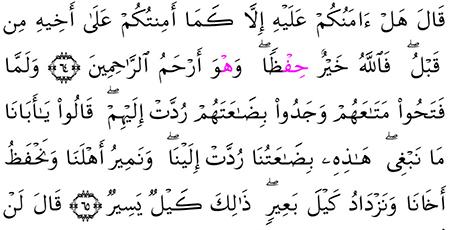 قَالَ هَلْ ءَامَنُكُمْ عَلَيْهِ إِلَّا كَمَا أَمِنتُكُمْ عَلَىٰ أَخِيهِ مِن
قَبْلُ ۖ فَاللَّهُ خَيْرٌ حِفْظًا ۖ وَهْوَ أَرْحَمُ الرَّاحِمِينَ ﴿٦٤﴾ وَلَمَّا
فَتَحُوا۟ مَتَـٰعَهُمْ وَجَدُوا۟ بِضَـٰعَتَهُمْ رُدَّتْ إِلَيْهِمْ ۖ قَالُوا۟ يَـٰأَبَانَا
مَا نَبْغِى ۖ هَـٰذِهِۦ بِضَـٰعَتُنَا رُدَّتْ إِلَيْنَا ۖ وَنَمِيرُ أَهْلَنَا وَنَحْفَظُ
أَخَانَا وَنَزْدَادُ كَيْلَ بَعِيرٍ ۖ ذَٰلِكَ كَيْلٌ يَسِيرٌ ﴿٦٥﴾ قَالَ لَنْ